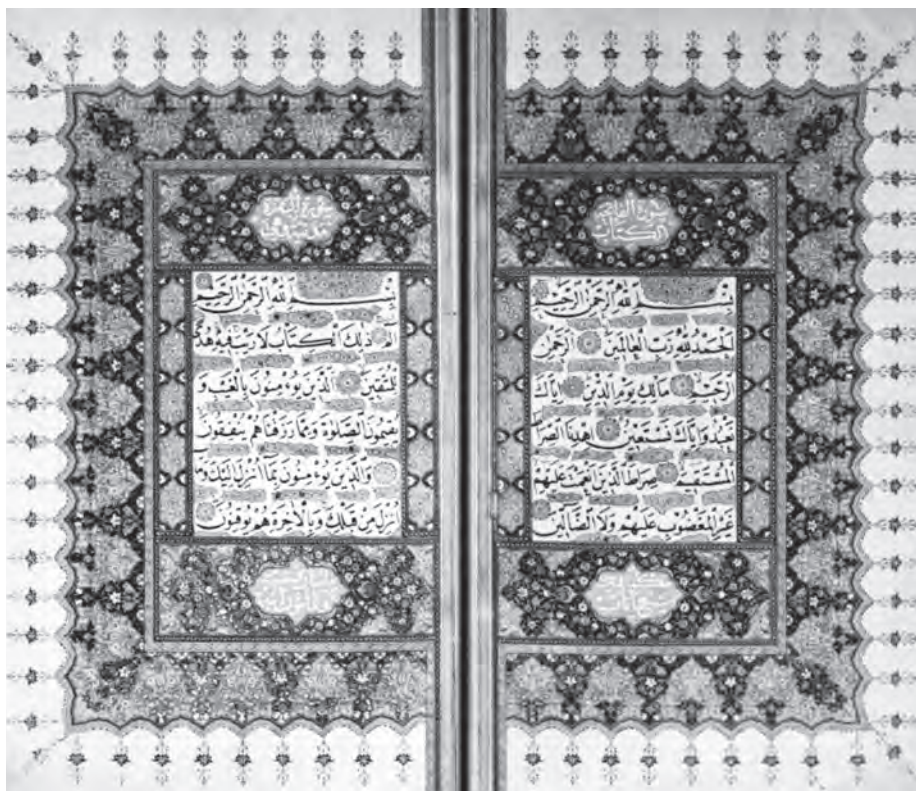 سورة الفاتحة
الكتاب
بسم الله الرحمن الرحيم
الحمد لله رب العالمين الرحمن
الرحيم مالك يوم الدين إياك
نعبد وإياك نستعين اهدنا الصراط
المستقيم صراط الذين أنعمت عليهم
غير المغضوب عليهم ولا الضالين
سورة البقرة
بسم الله الرحمن الرحيم
الم ذلك الكتاب لا ريب فيه هدى
للمتقين الذين يؤمنون بالغيب و
يقيمون الصلوة ومما رزقناهم ينفقون
والذين يؤمنون بما أنزل إليك وما
أنزل من قبلك وبالآخرة هم يوقنون